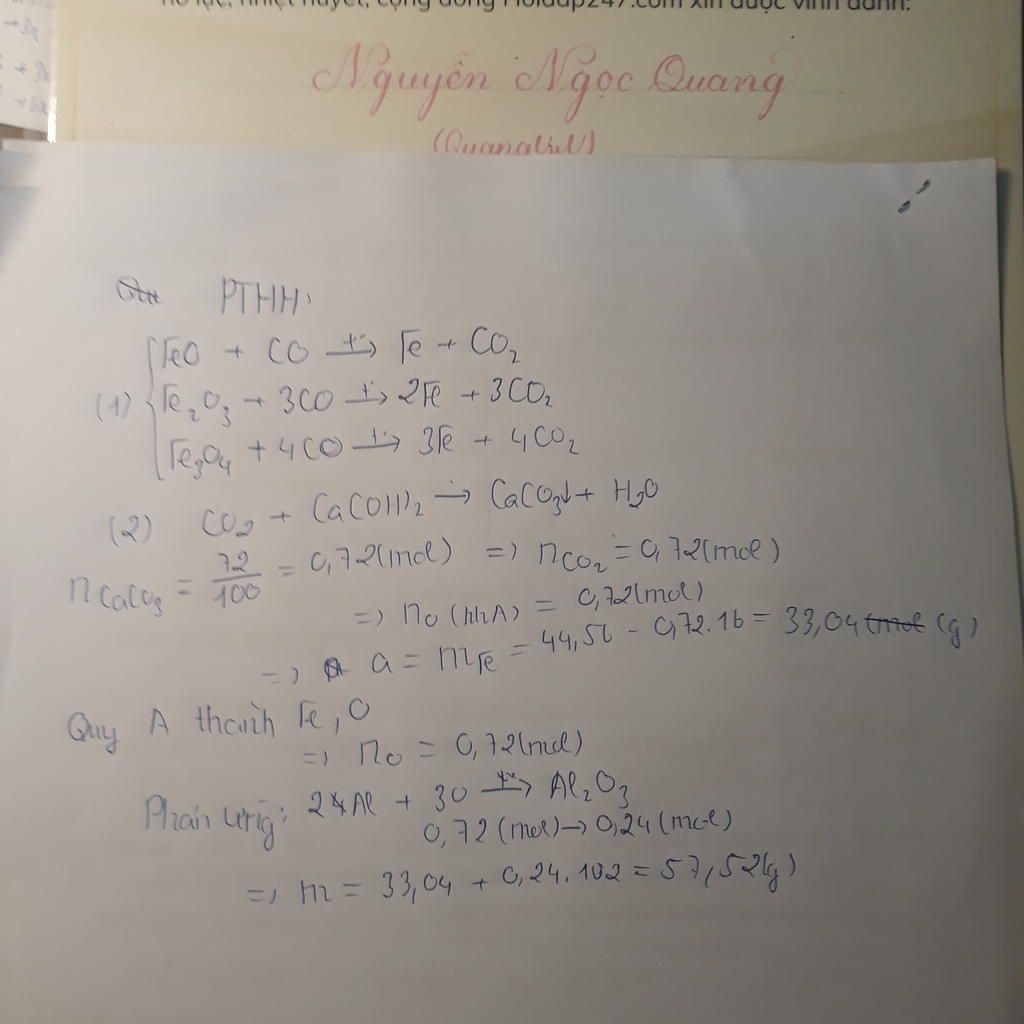 nỗ lực, nhiệt huyết, cộng đồng Hoidap247.com xin được vinh danh:
Nguyễn Ngọc Quang
PTHH:
(1) FeO + CO →(t°) Fe + CO₂
Fe₂O₃ + 3CO →(t°) 2Fe + 3CO₂
Fe₃O₄ + 4CO →(t°) 3Fe + 4CO₂
(2) CO₂ + Ca(OH)₂ → CaCO₃↓ + H₂O
nCaCO₃ = 72/100 = 0,72(mol) => nCO₂ = 0,72(mol)
=> nO (hhA) = 0,72(mol)
=> a = mFe = 44,56 - 0,72.16 = 33,04 (g)
Quy A thành Fe, O
=> nO = 0,72(mol)
Phản ứng: 2Al + 3O →(t°) Al₂O₃
0,72 (mol) → 0,24 (mol)
=> m = 33,04 + 0,24.102 = 57,52(g)